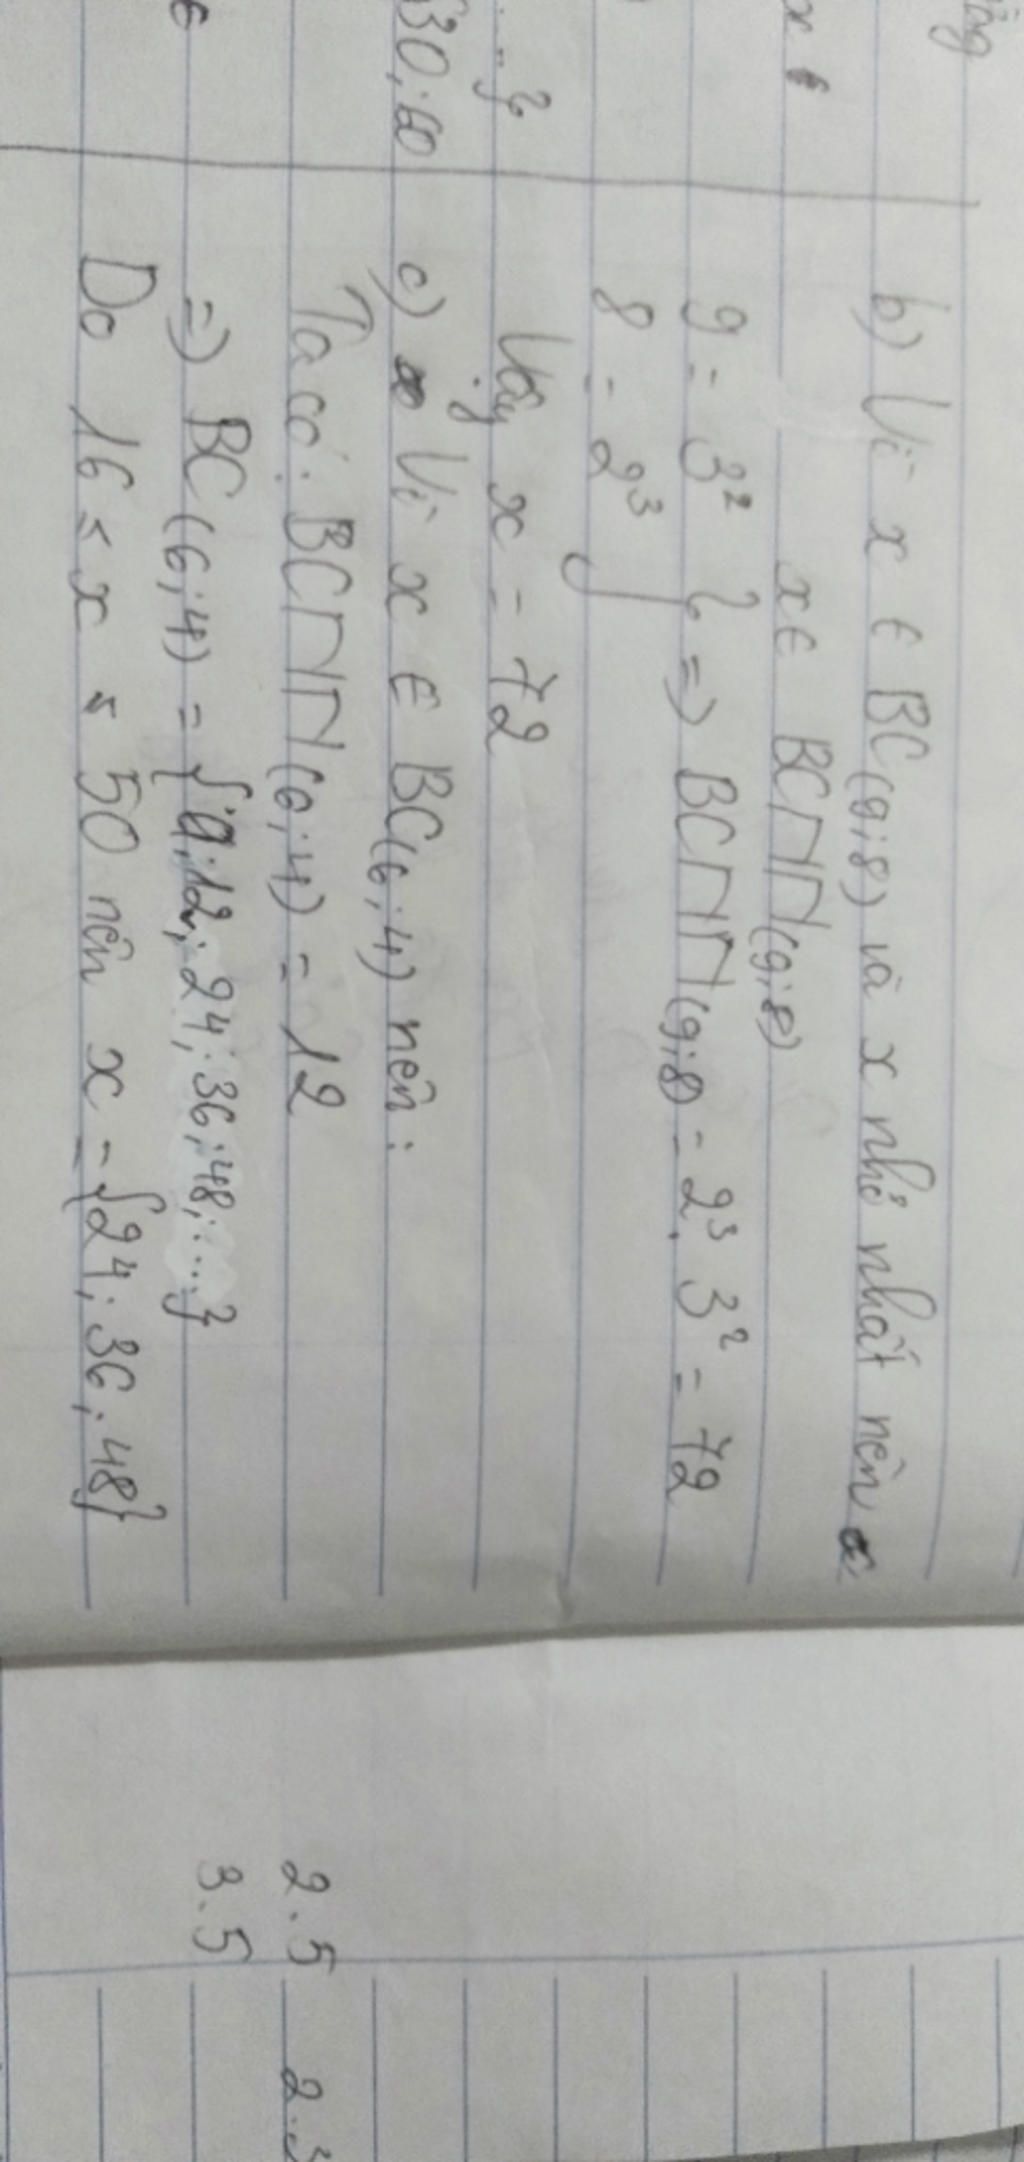 b) Vì x ∈ BC(9;8) và x nhỏ nhất nên
x ∈ BCNN(9;8)
9 = 3² } => BCNN(9;8) = 2³. 3² = 72
8 = 2³
Vậy x = 72
c) Vì x ∈ BC(6;4) nên:
Ta có: BCNN(6;4) = 12
=> BC(6;4) = {0;12;24;36;48;...}
Do 16 ≤ x ≤ 50 nên x = {24;36;48}
x ∈
...}
{30;60
∈
2.5 2.3
3.5